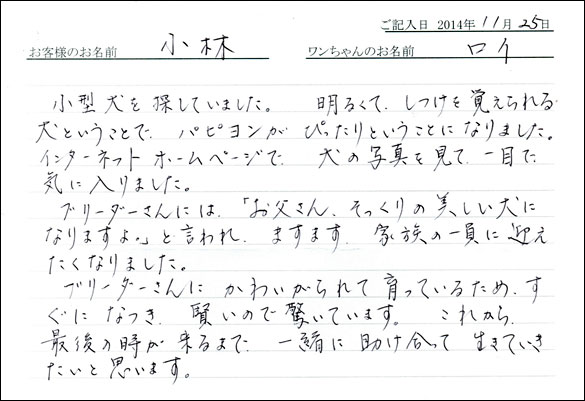 ご記入日 2014年 11月 25日
お客様のお名前 小林 ワンちゃんのお名前 ロイ
小型犬を探していました。 明るくて、しつけを覚えられる
犬ということで、パピヨンが ぴったりということになりました。
インターネット ホームページで、 犬の写真を見て、一目で
気に入りました。
ブリーダーさんには、「お父さん、そっくりの美しい犬に
なりますよ。」と言われ、ますます、家族の一員に迎え
たくなりました。
ブリーダーさんに かわいがられて育っているため、す
ぐになつき、賢いので驚いています。 これから、
最後の時が来るまで、一緒に助け合って生きていき
たいと思います。